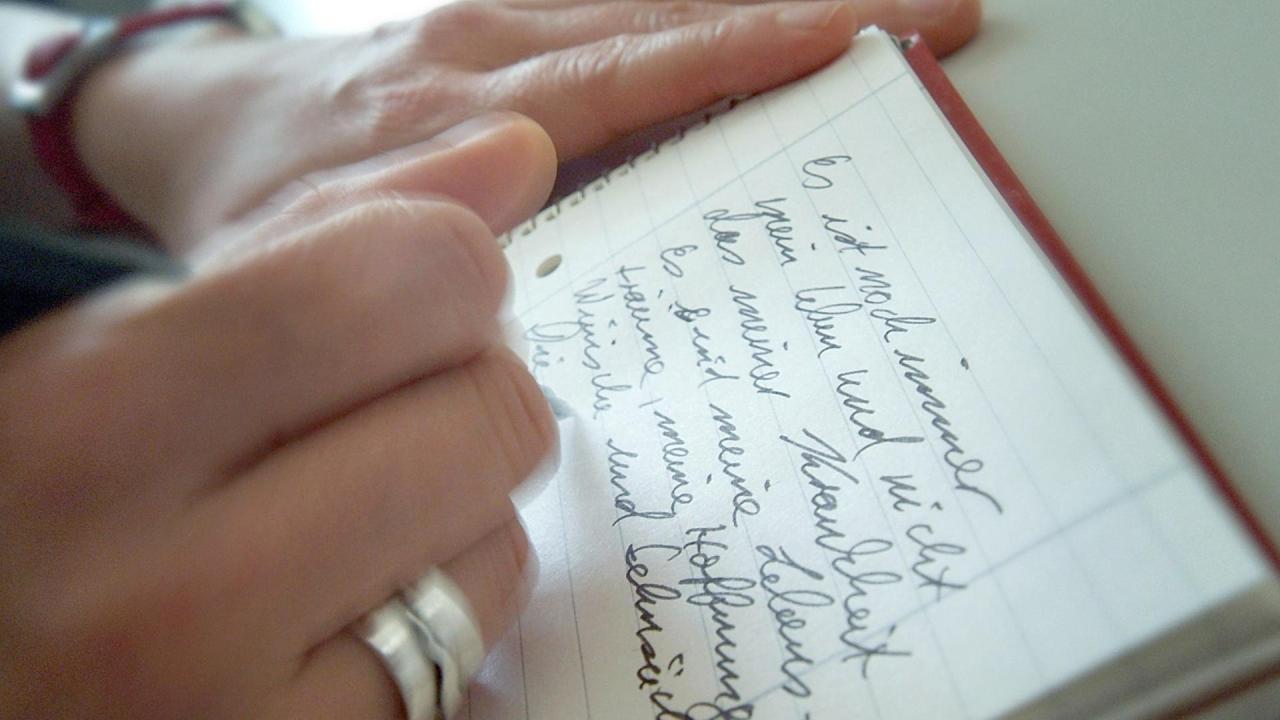 Es ist noch immer
mein Leben und nicht
das meiner Krankheit
Es sind meine Lebens-
träume, meine Hoffnung
Wünsche und Sehnsüc
Die